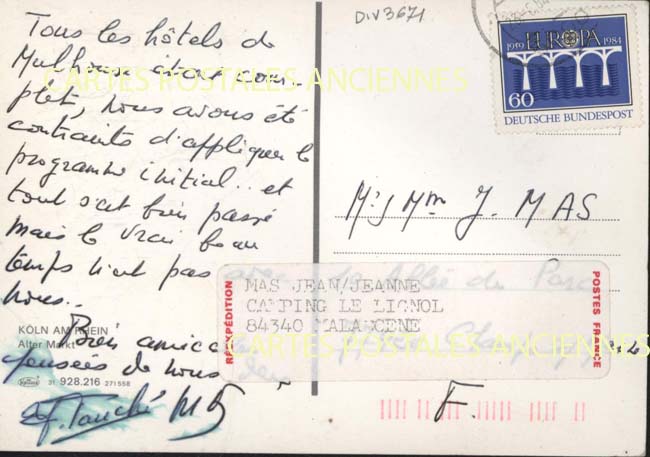 Tous les hôtels de
Mulhouse étant com-
plets, nous avons été
contraints d'appliquer le
programme initial.. et
tout s'est bien passé
mais le vrai beau
temps n'est pas avec
nous..
Bien amicales
pensées de nous
KÖLN AM RHEIN
Alter Markt
31 928.216 271 558
DIV3671
EUROPA
1959 1984
60
DEUTSCHE BUNDESPOST
M. & Mme J. MAS
Allée du Parc
RÉEXPÉDITION
MAS JEAN/JEANNE
CAMPING LE LIGNOL
84340 MALAUCENE
POSTES FRANCE
F.
CARTES POSTALES ANCIENNES
CARTES POSTALES ANCIENNES